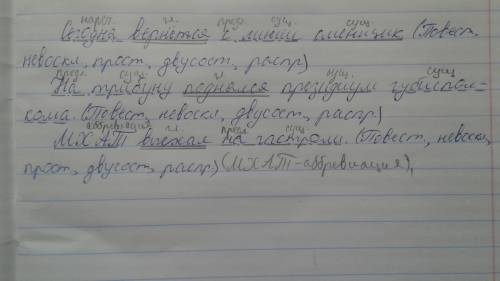 нареч. гл. предл. сущ. сущ.
Сегодня вернёться с линии сменщик (Повест.
невоскл, прост, двусост, распр)
предл. сущ. гл. сущ. сущ.
На трибуну поднялся президиум губиспол-
кома. (Повест, невоскл, двусост, распр)
аббревиация гл. предл. сущ.
МХАТ выехал на гастроли. (Повест, невоскл,
прост, двусост, распр) (МХАТ-аббревиация),